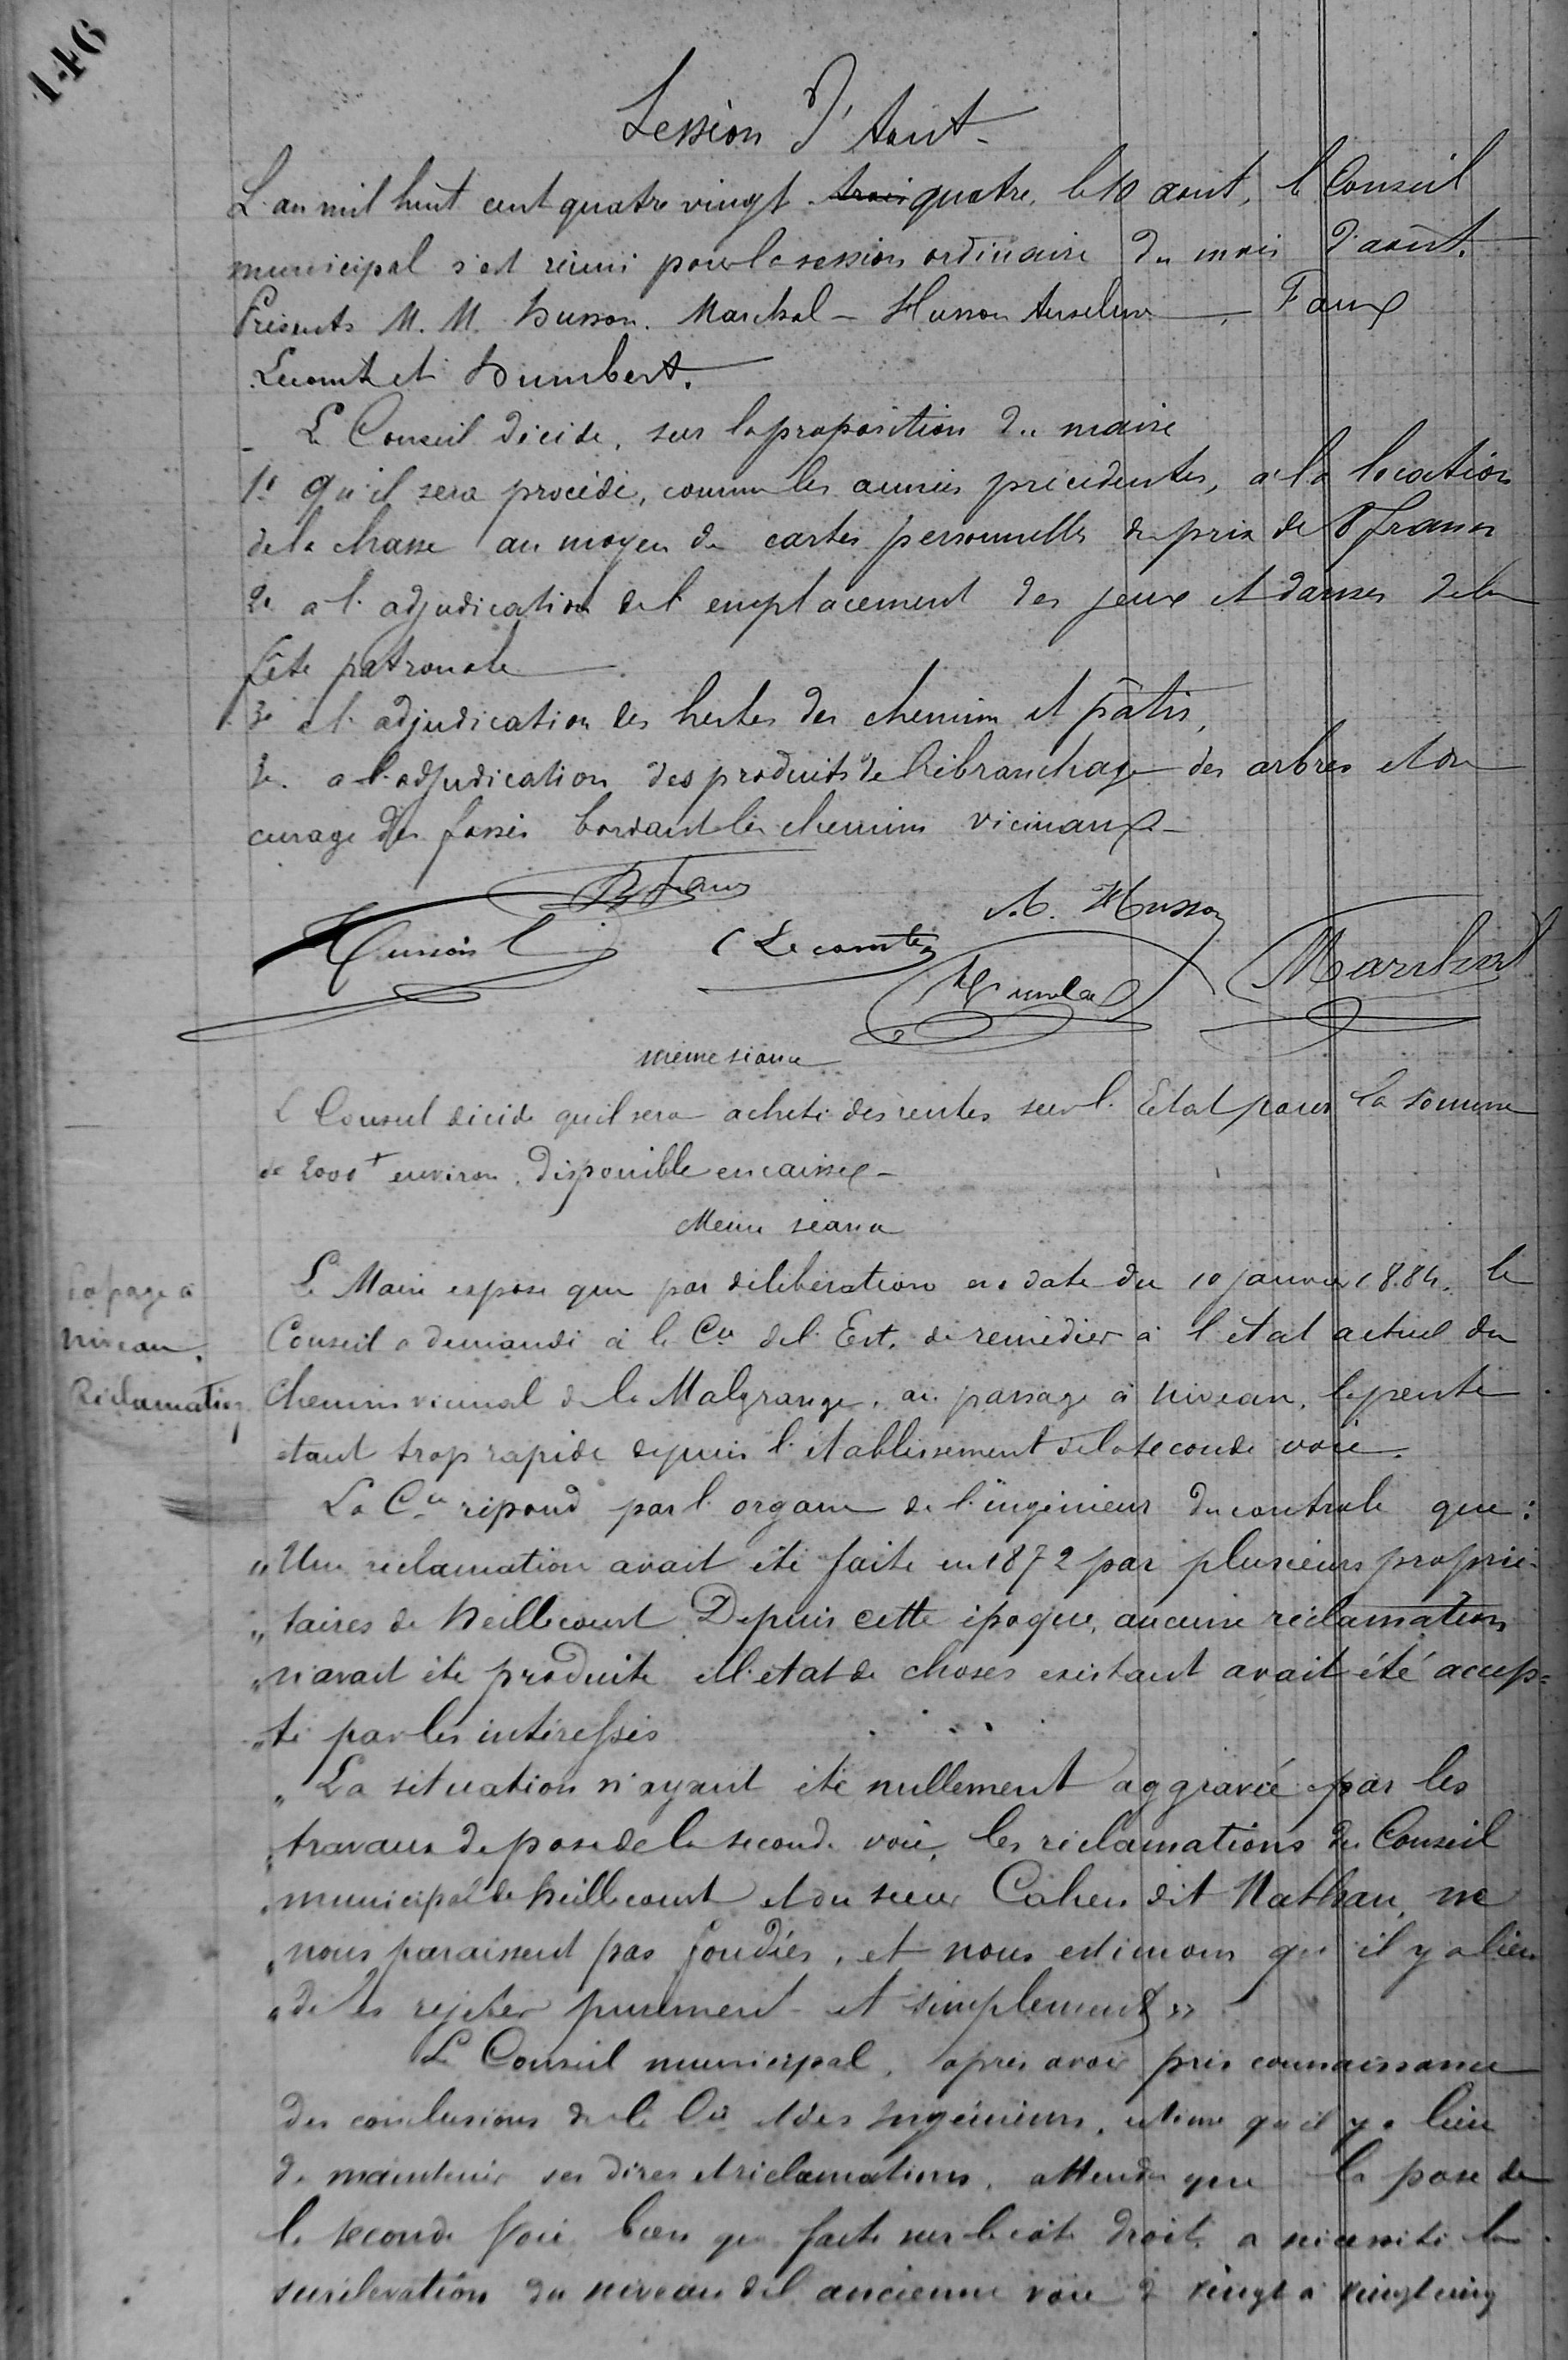 146
Session d'Aout
L'an mil huit cent quatre vingt trois quatre, le 10 aout, le Conseil
municipal s'est réuni pour la session ordinaire du mois d'août.
Présents M. M. Husson. Marchal - Husson Anselme, Faux
Lecomte et Humbert.
Le Conseil décide, sur la proposition du maire
1º qu'il sera procédé, comme les années précédentes, à la location
de la chasse au moyen de cartes personnelles du prix de 8 francs
2º a l'adjudication de l'emplacement des jeux et danses de la
fête patronale
3º a l'adjudication des herbes des chemins et pâtis,
3º a l'adjudication des produits de l'ébranchage des arbres et du
curage des fossés bordant les chemins vicinaux
Faux
A. Husson
Husson
C Lecomte
Humbert
Marchal
même séance
Le Conseil décide qu'il sera acheté des rentes sur l'Etat pour la somme
de 2000 f environ, disponible en caisse
Même séance
Passage à
niveau.
Réclamation
Le Maire expose que par délibération en date du 10 janvier 1884, le
Conseil a demandé à la Cie de l'Est, de remédier à l'état actuel du
Chemin vicinal de la Malgrange, au passage à niveau, la pente
étant trop rapide depuis l'établissement de la seconde voie.
La Cie répond par l'organe de l'ingénieur du contrôle que :
"Une réclamation avait été faite en 1872 par plusieurs proprié-
"taires de Heillecourt Depuis cette époque, aucune réclamation
"n'avait été produite et l'état de choses existant avait été accep=
"té par les intéressés
"La situation n'ayant été nullement aggravée par les
"travaux de pose de la seconde voie, les réclamations du Conseil
"municipal de Heillecourt et du sieur Cahen dit Nathan, ne
"nous paraissent pas fondées, et nous estimons qu'il y a lieu
"de les rejeter purement et simplement"
Le Conseil municipal, après avoir pris connaissance
des conclusions de la Cie et des Ingénieurs, estime qu'il y a lieu
de maintenir ses dires et réclamations, attendu que la pose de
la seconde voie bien que faite sur le côté droit, a nécessité la
surélévation du niveau de l'ancienne voie de vingt à vingt cinq